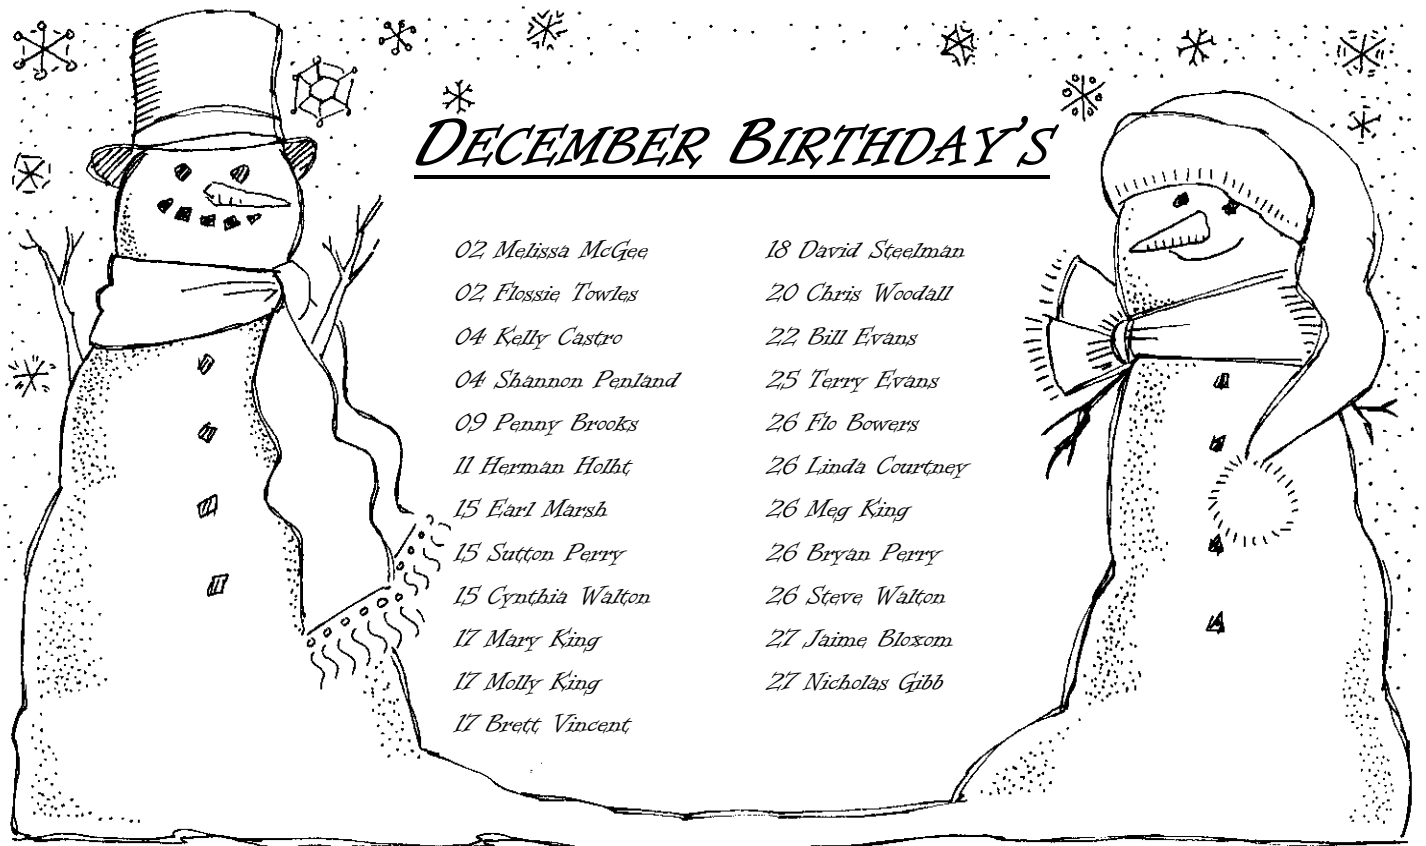 DECEMBER BIRTHDAY'S
02 Melissa McGee
02 Flossie Towles
04 Kelly Castro
04 Shannon Penland
09 Penny Brooks
11 Herman Holht
15 Earl Marsh
15 Sutton Perry
15 Cynthia Walton
17 Mary King
17 Molly King
17 Brett Vincent
18 David Steelman
20 Chris Woodall
22 Bill Evans
25 Terry Evans
26 Flo Bowers
26 Linda Courtney
26 Meg King
26 Bryan Perry
26 Steve Walton
27 Jaime Bloxom
27 Nicholas Gibb